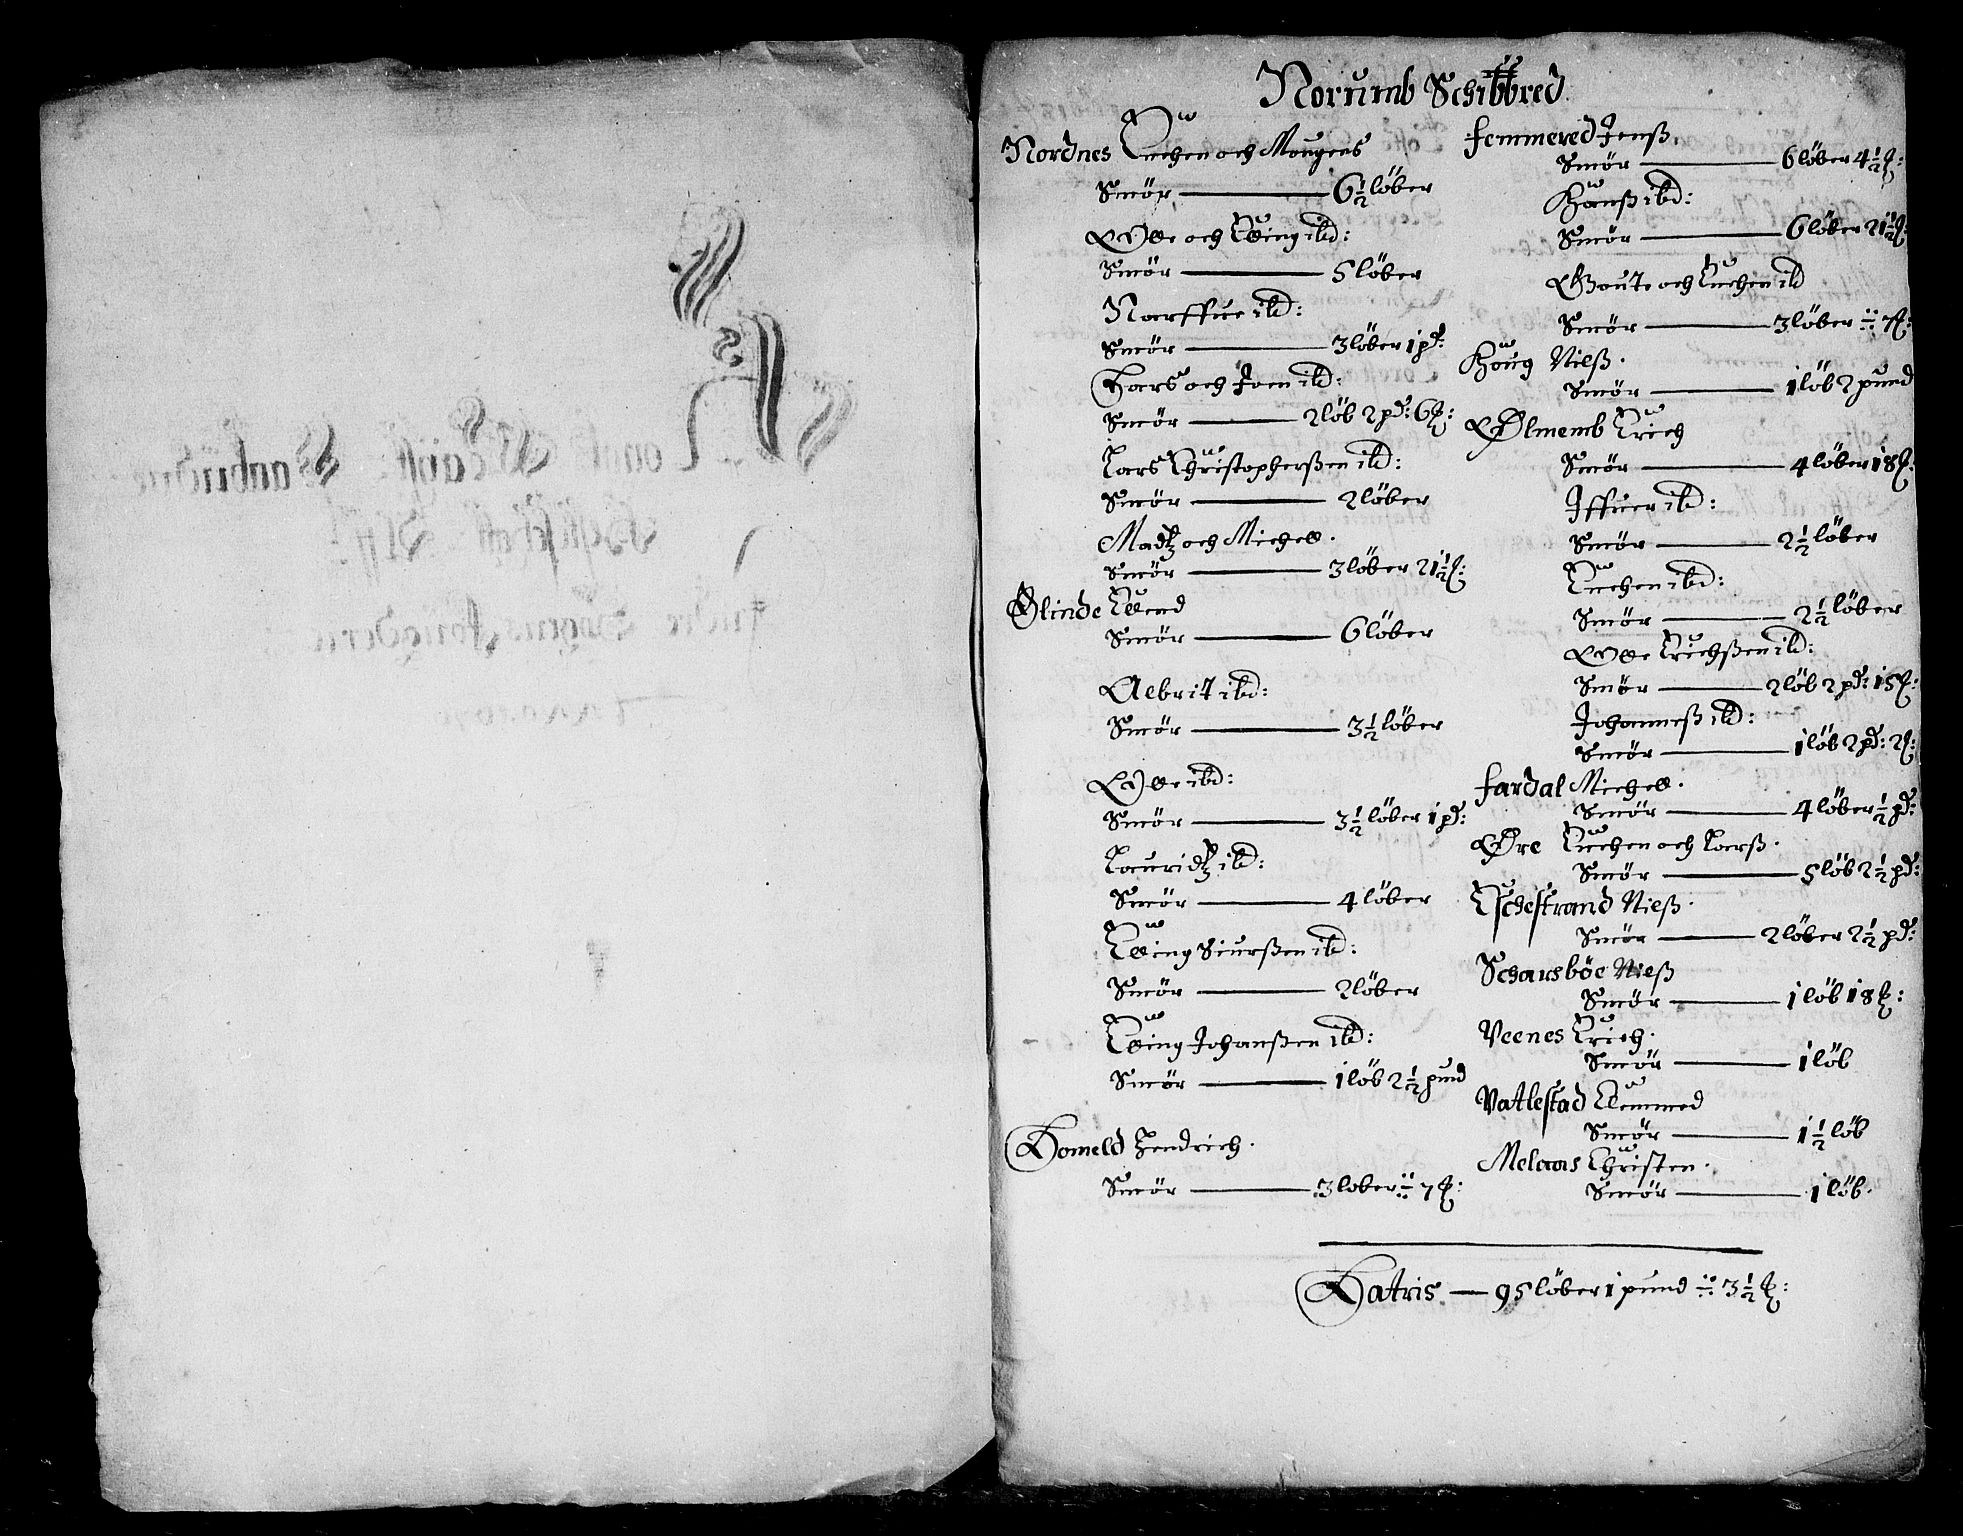 Norumb Schibbred
Nordnes Anchen och Mougens
Smör — 6½ löber
Olle och Elling ibd:
Smör — 5 löber
Narffue ibd:
Smör — 3 löber 1 pd:
Lars och Joen ibd:
Smör — 2 löb 2 pd: 6 ℔:
Lars Christopherßen ibd:
Smör — 2 löber
Madtz och Michell.
Smör — 3 löber 21½ ℔:
Ølinde Ellend
Smör — 6 löber
Aebrit ibd:
Smör — 3½ löber
Olle ibd:
Smör — 3½ löber 1 pd:
Lauridtz ibd:
Smör — 4 löber
Elling Siurßen ibd:
Smör — 2 löber
Elling Johanßen ibd:
Smör — 1 löb 2½ pund
Homeld Hendrich.
Smör — 3 löber ÷ 7 ℔:
Femmered Jenß
Smör — 6 löber 4½ ℔:
Hanß ibd:
Smör — 6 löber 21½ ℔:
Goute och Anchen ibd
Smör — 3 löber ÷ 7 ℔:
Houg Nilß.
Smör — 1 löb 2 pund
Ølmemb Erich
Smör — 4 löber 18 ℔:
Iffuer ibd:
Smör — 2½ löber
Anchen ibd:
Smör — 2½ löber
Olle Erichßen ibd:
Smör — 2 löb 2 pd: 15 ℔:
Johanneß ibd:
Smör — 1 löb 2 pd: 2 ℔:
Fardal Michell.
Smör — 4 löber ½ pd:
Øre Anchen och Larß.
Smör — 5 löb 2½ pd:
Eschestrand Nielß.
Smör — 2 löber 2½ pd:
Scharsböe Nielß
Smör — 1 löb 18 ℔:
Veenes Erich.
Smör — 1 löb
Vatlestad Clemmed
Smör — 1½ löb
Melaas Christen.
Smör — 1 löb.
Latris — 95 löber 1 pund ÷ 3½ ℔: